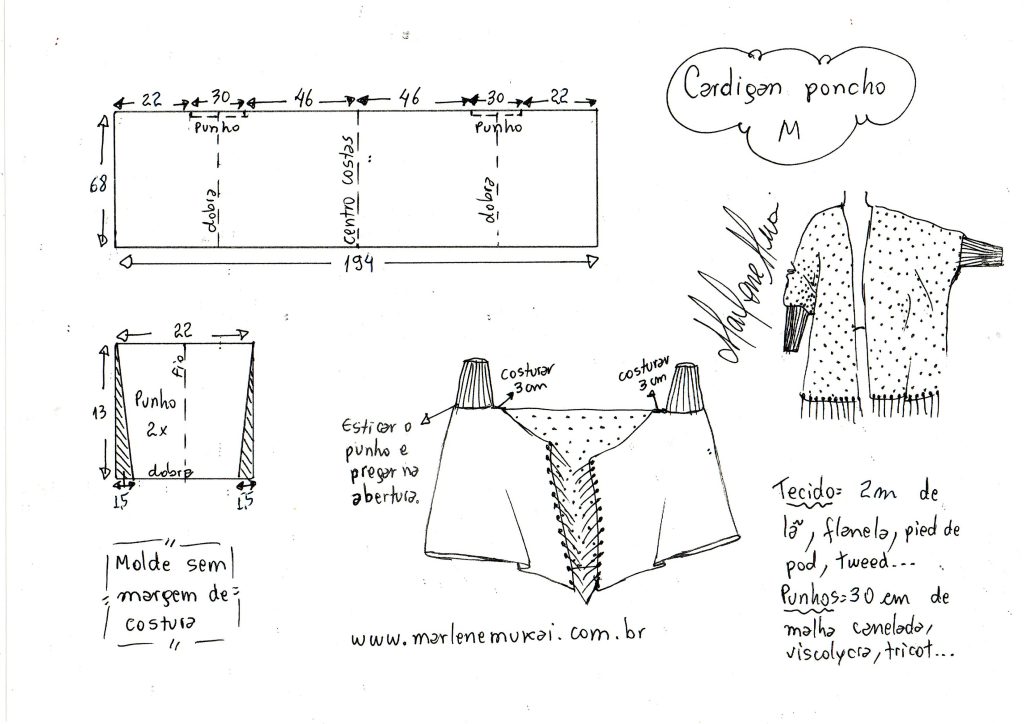 Cardigan poncho
M
22 30 46 46 30 22
Punho Punho
68
dobra
centro costas
dobra
194
22
13
fio
Punho
2x
dobra
1,5 1,5
Molde sem
margem de
costura
costurar
3 cm
costurar
3 cm
Esticar o
punho e
pregar na
abertura.
www.marlenemukai.com.br
Marlene Mukai
Tecido= 2m de
lã, flanela, pied de
pod, tweed...
Punhos=30 cm de
malha canelada,
viscolycra, tricot...